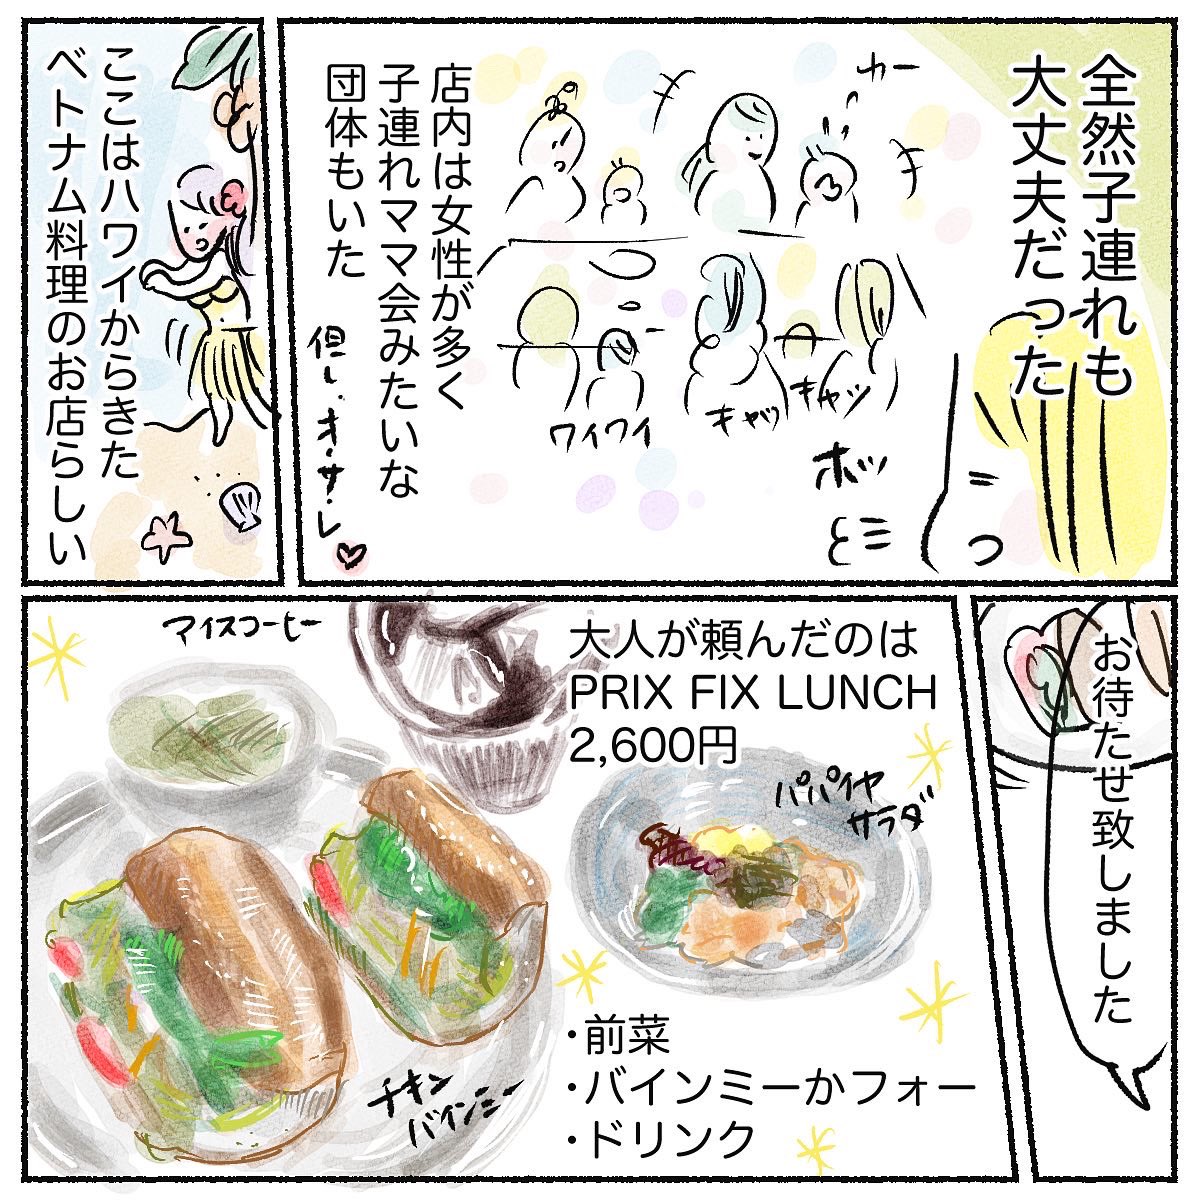 全然子連れも
大丈夫だった
カー
ワイワイ
キャッ
キャッ
ホッ
店内は女性が多く
子連れママ会みたいな
団体もいた
但し、オ・サ・レ♡
ここはハワイからきた
ベトナム料理のお店らしい
お待たせ致しました
大人が頼んだのは
PRIX FIX LUNCH
2,600円
アイスコーヒー
パパイヤ
サラダ
チキン
バインミー
・前菜
・バインミーかフォー
・ドリンク